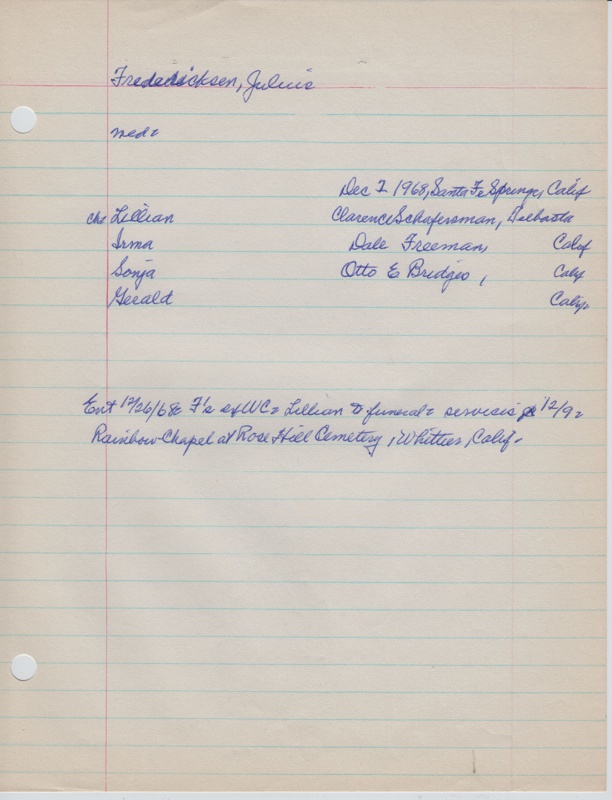 Fredericksen, Julius
med=
Dec 7 1968, Santa Fe Springs, Calif
chs Lillian Clarence Schafersman,
Irma Dale Freeman, Calif
Sonja Otto E Bridges, Calif
Gerald Calif=
Ent 12/26/68= F's of WC= Lillian to funeral= services 12/9=
Rainbow Chapel at Rose Hill Cemetery, Whittier, Calif.